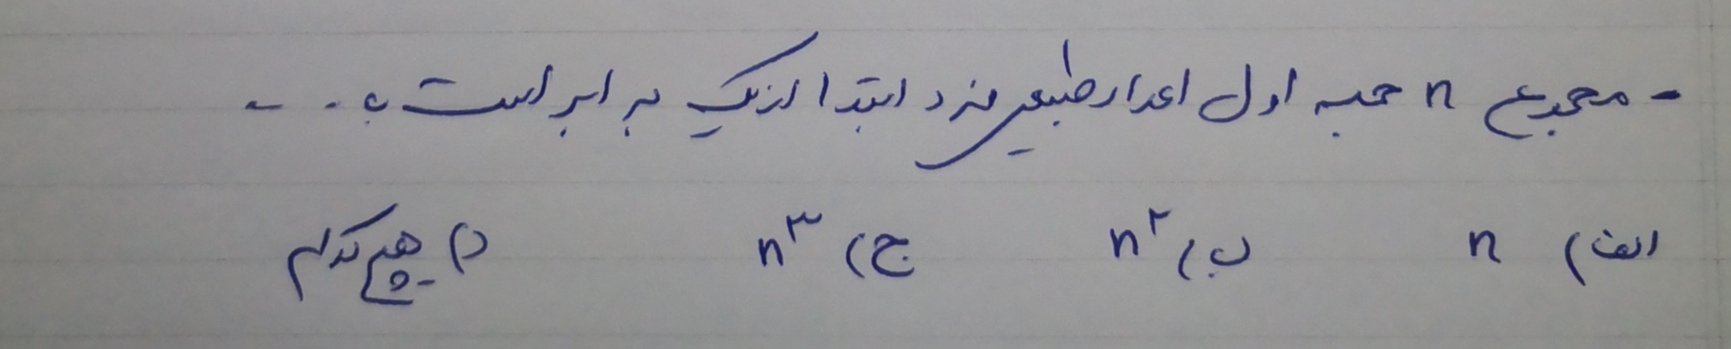 - مجموع n جمله اول اعداد طبیعی فرد ابتدا از یک برابر است با ...
الف) n ب) n² ج) n³ د) هیچ کدام